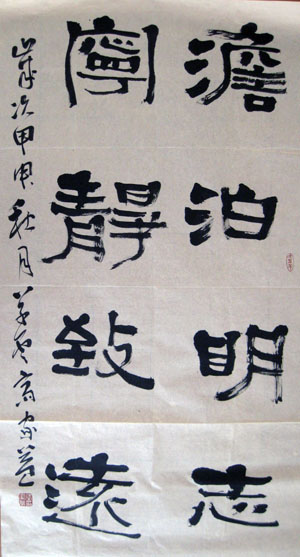 澹泊明志
寧靜致遠
歲次甲申秋月